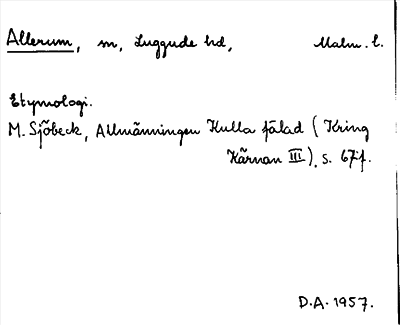 Allerum, m, Luggude hd, Malm. l.
Etymologi.
M. Sjöbeck, Allmänningen Kulla fälad (Kring
Kärnan III), s. 67 f.
D.A. 1957.